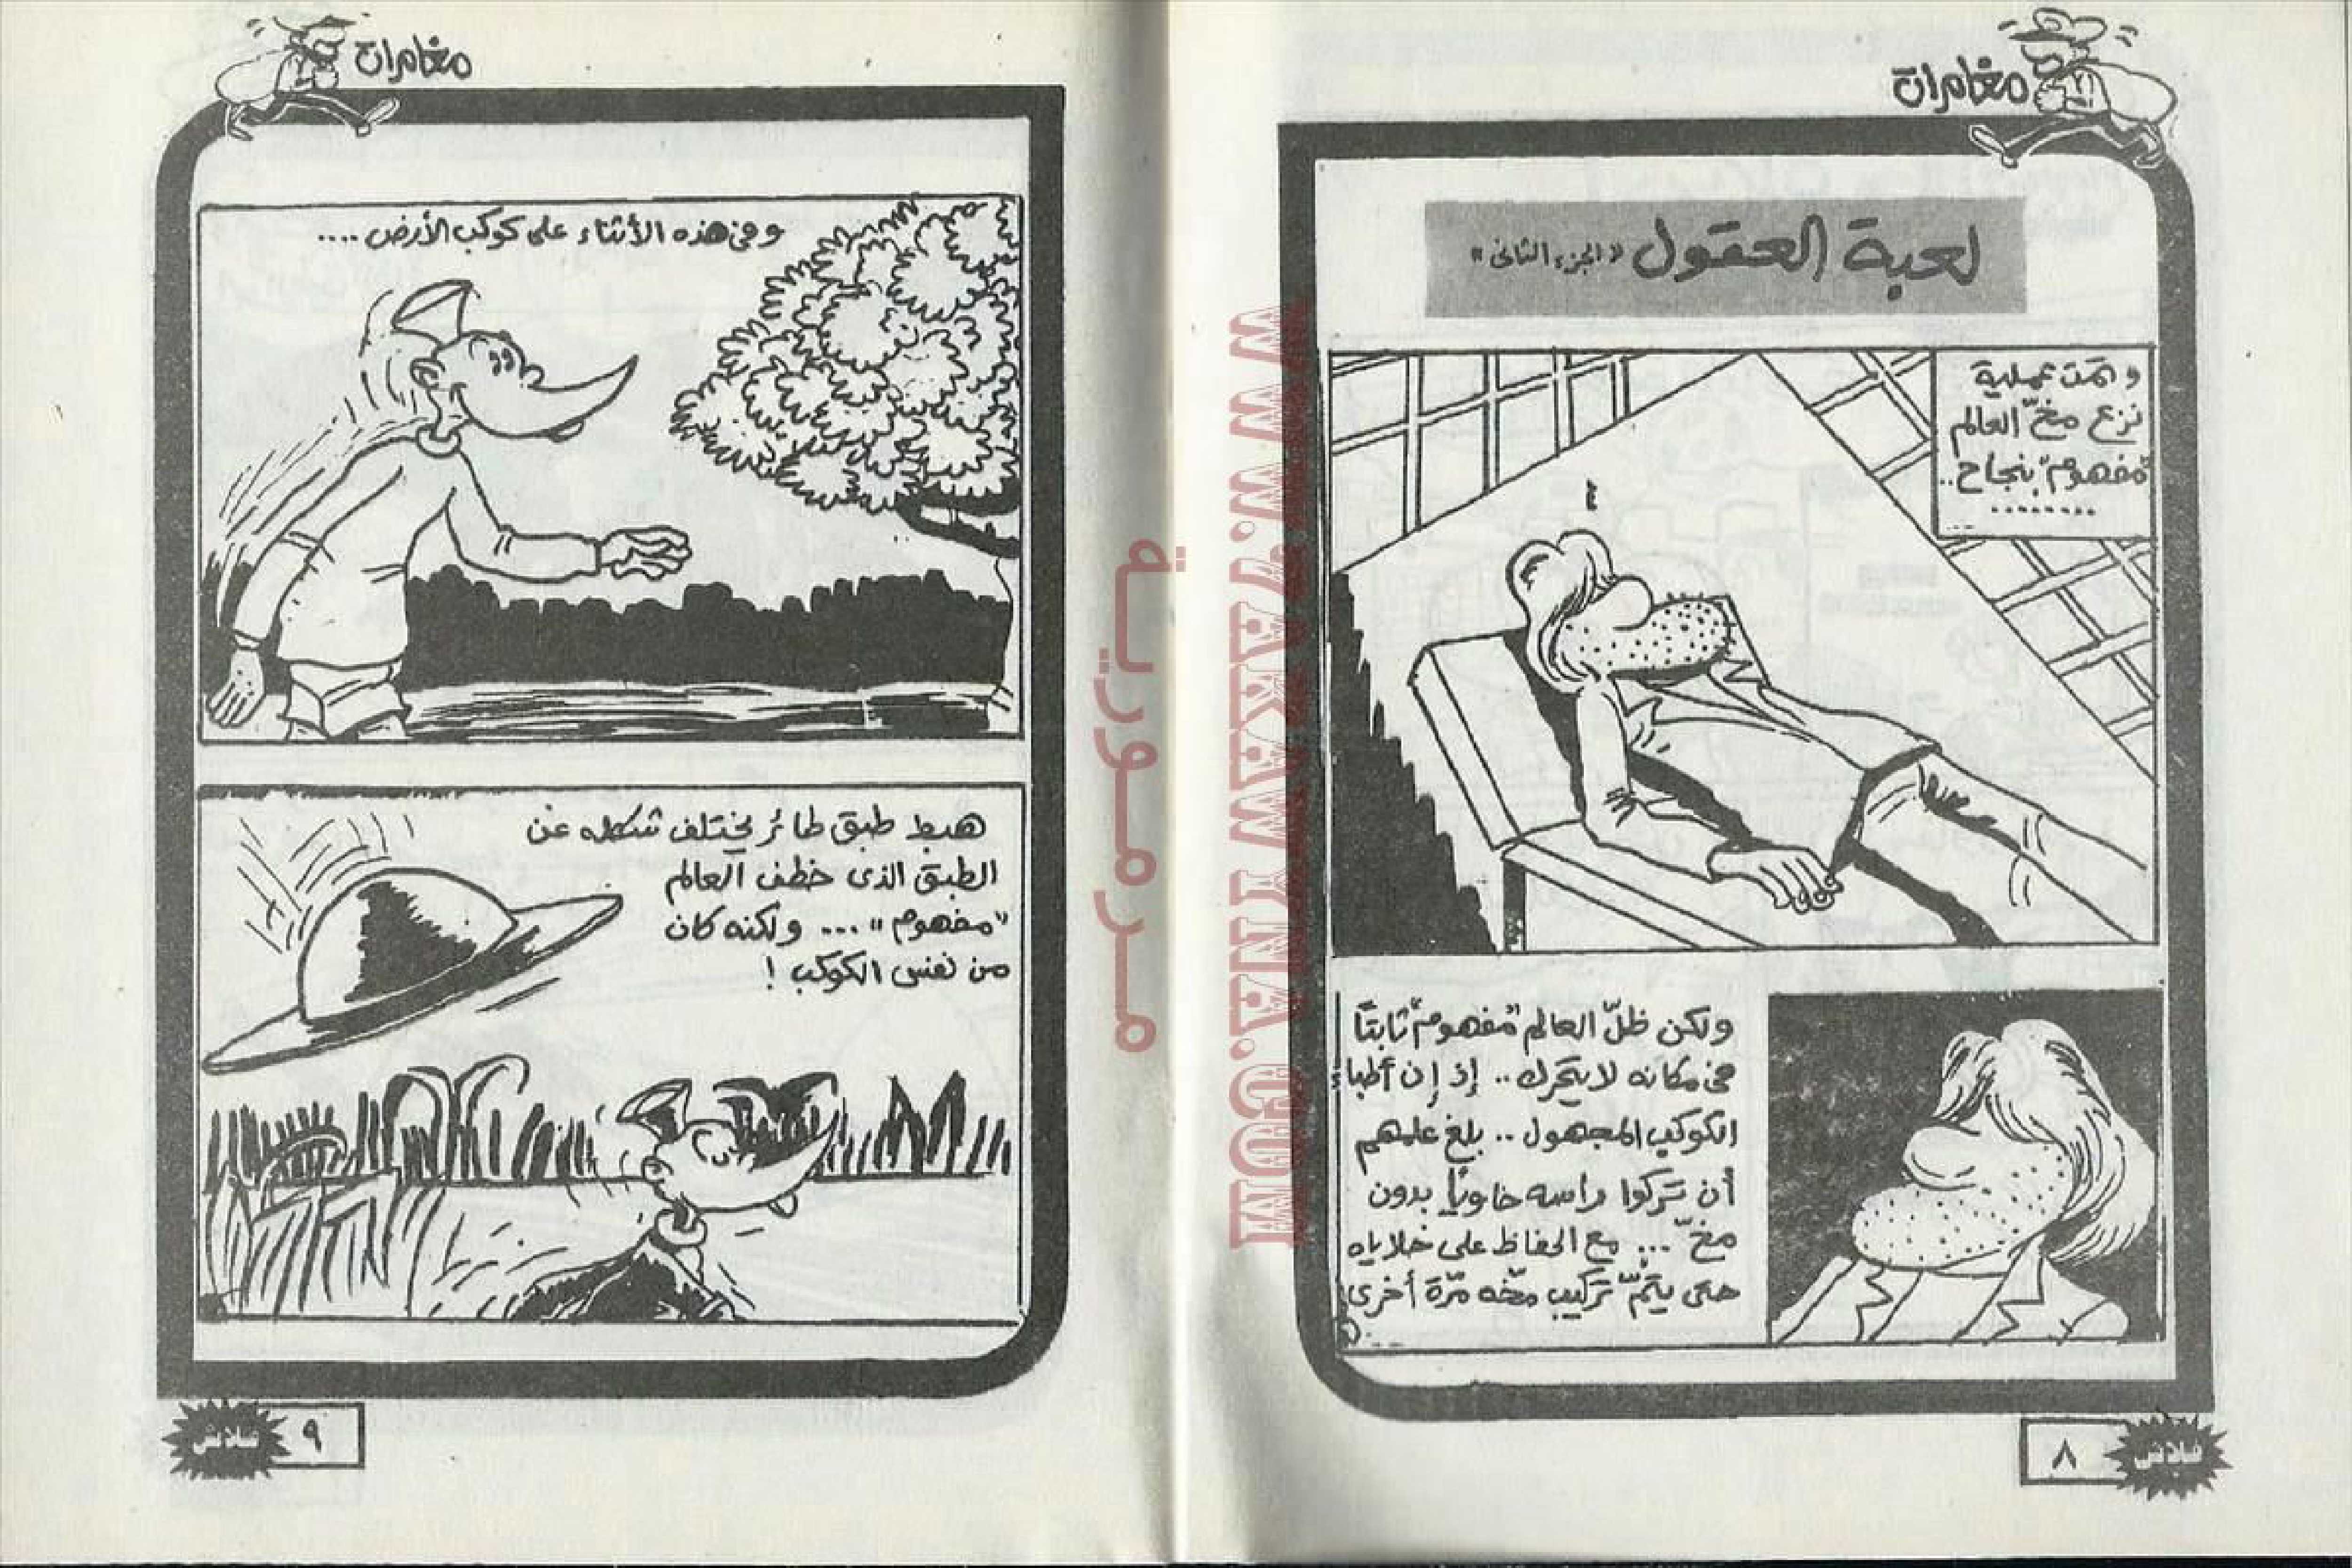 مغامرات
لعبة العقول «الجزء الثانى»
وتمت عملية
نزع مخّ العالم
"مفهوم" بنجاح..
........
ولكن ظلّ العالم "مفهوم" ثابتًا
فى مكانه لا يتحرك.. إذ إن أطباء
الكوكب المجهول.. بلغ علمهم
أن تركوا رأسه خاويًا بدون
مخّ... مع الحفاظ على خلاياه
حتى يتمّ تركيب مخّه مرّة أخرى
٨
فلاش
مغامرات
وفى هذه الأثناء على كوكب الأرض....
هبط طبق طائر يختلف شكله عن
الطبق الذى خطف العالم
"مفهوم"... ولكنه كان
من نفس الكوكب!
٩
فلاش
مرمورية
WWW.ARABCOMICS.NET